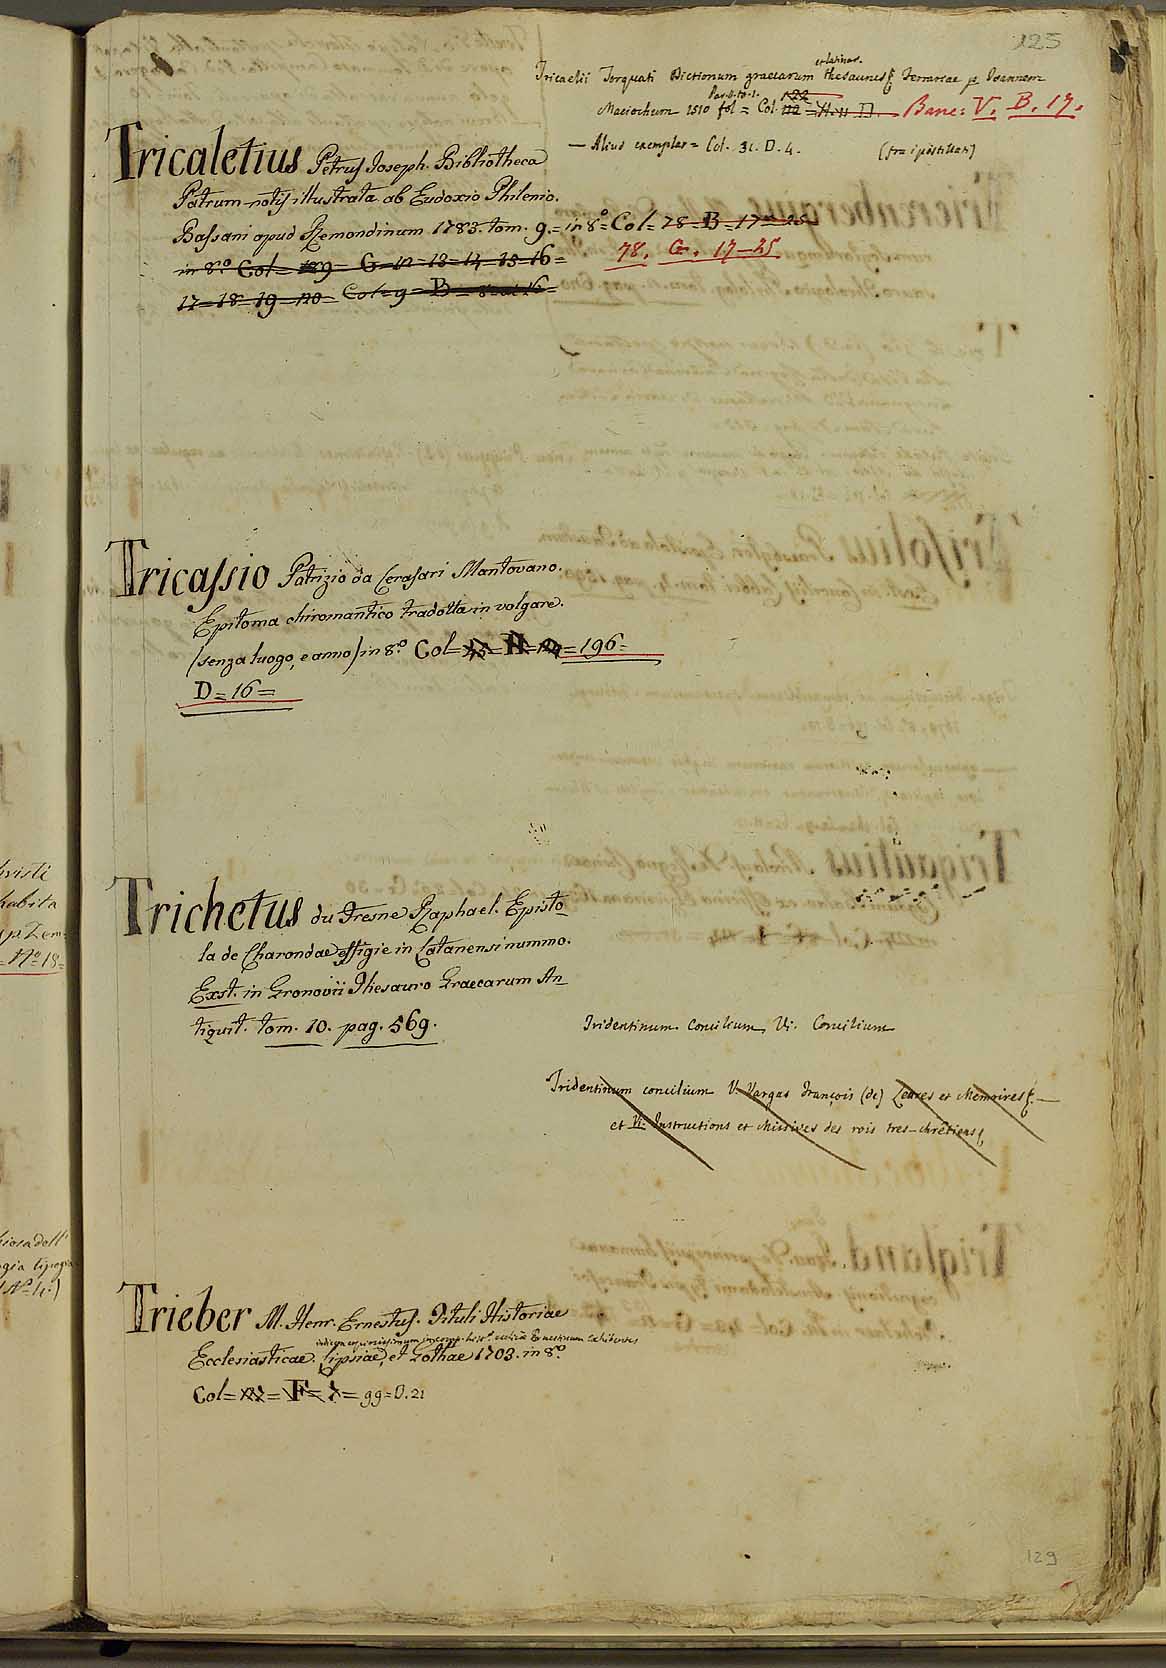 125
et latinar.
Tricaelii Torquati Dictionum graecarum thesaurus Ferrariae p. Joannem
Maciochum 1510 fol = Col. Banc: V. B. 17.
— Aliud exemplar = Col. 31. D. 4. (fra i postillati)
Tricaletius Petrus Joseph. Bibliotheca
Patrum notis illustrata ab Eudoxio Philenio.
Bassani apud Remondinum 1783. tom. 9. = in 8.° = Col = 78 = B = 17 = 25
in 8.° Col = 189 = G = 12 = 13 = 14 = 15 = 16 =
78. G. 17-25
17 = 18 = 19 = 120 = Col = 9 = B =
Tricassio Patrizio da Cerasari Mantovano.
Epitoma chiromantico tradotta in volgare.
(senza luogo, e anno) in 8.° Col = H = 196 =
D = 16 =
Trichetus du Fresne Raphael. Episto
la de Charondae effigie in Catanensi nummo.
Exst. in Gronovii Thesauro Graecarum An
tiquit. tom. 10. pag. 569.
Tridentinum concilium Vi. Concilium
Tridentinum concilium V. Vargas François (de) Letres et Memoires &. —
et Vi. Instructions et Missives des rois tres-chrêtiens &
Trieber M. Henr. Ernestus. Tituli Historiae
Ecclesiasticae. Lipsiae, et Gothae 1703. in 8.°
Col = F = = 99 = D. 21
129
visti
habita
= N.° 18 =